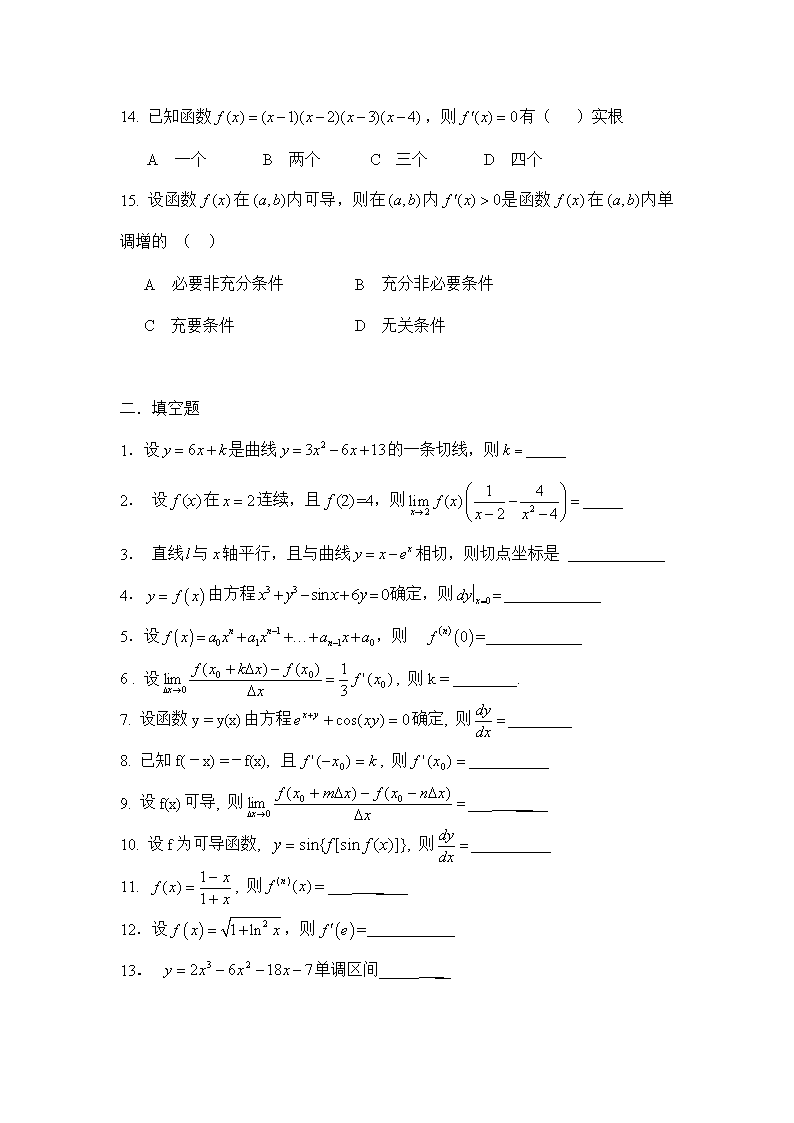 14. 已知函数 f(x) = (x−1)(x−2)(x−3)(x−4)，则 f′(x) = 0有（ ）实根
A 一个 B 两个 C 三个 D 四个
15. 设函数 f(x)在(a,b)内可导，则在(a,b)内 f′(x) > 0是函数 f(x)在(a,b)内单
调增的 （ ）
A 必要非充分条件 B 充分非必要条件
C 充要条件 D 无关条件
二．填空题
1．设 y = 6x + k是曲线 y = 3x² − 6x + 13的一条切线，则 k = _____
2． 设 f(x)在 x = 2连续，且 f(2)=4，则 lim_{x→2} f(x)(1/(x−2) − 4/(x²−4)) = _____
3． 直线 l 与 x 轴平行，且与曲线 y = x − e^x 相切，则切点坐标是 ____________
4．y = f(x)由方程 x³ + y³ − sin x + 6y = 0确定，则 dy|_{x=0} = ____________
5．设 f(x) = a₀x^n + a₁x^{n−1} + … + a_{n−1}x + a₀，则 f^{(n)}(0) = ____________
6 . 设 lim_{Δx→0} (f(x₀ + kΔx) − f(x₀))/Δx = 1/3 f'(x₀) , 则 k = ________.
7. 设函数 y = y(x) 由方程 e^{x+y} + cos(xy) = 0确定, 则 dy/dx = ________
8. 已知 f(－x) =－f(x), 且 f'(−x₀) = k , 则 f'(x₀) = __________
9. 设 f(x) 可导, 则 lim_{Δx→0} (f(x₀ + mΔx) − f(x₀ − nΔx))/Δx = __________
10. 设 f 为可导函数, y = sin{f[sin f(x)]}, 则 dy/dx = __________
11. f(x) = (1−x)/(1+x) , 则 f^{(n)}(x) = __________
12．设 f(x) = √(1+ln² x) ，则 f′(e) = ___________
13． y = 2x³ − 6x² − 18x − 7单调区间_________